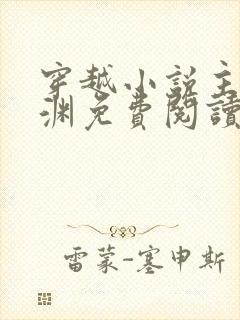 穿越小説主
渊免費閱讀
雷蒙-塞申斯